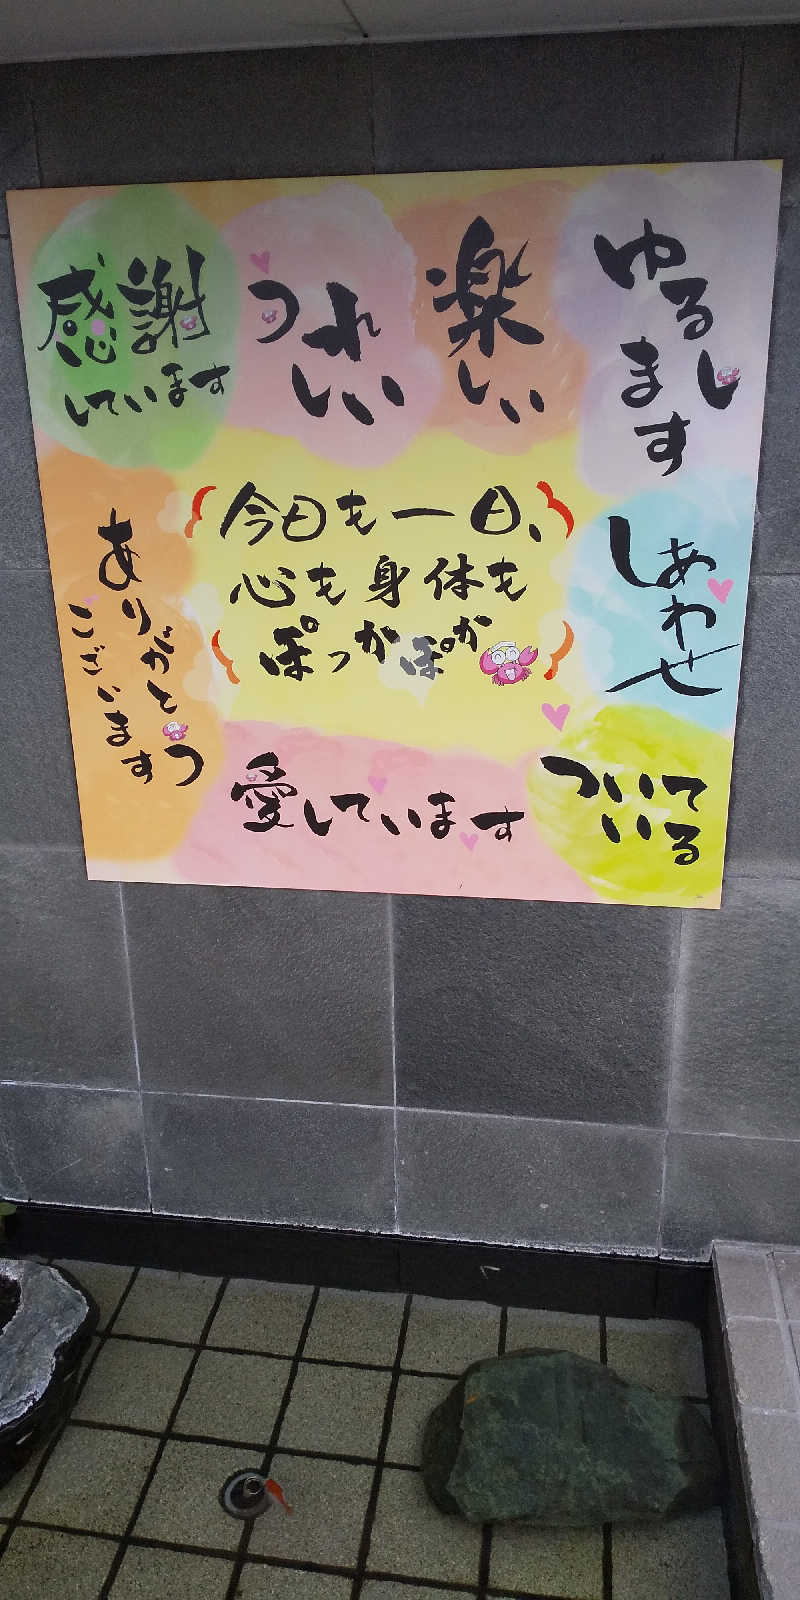 感謝
しています
うれ
しい
楽
しい
ゆるし
ます
今日も一日、
心も身体も
ぽっかぽか
しあわせ
ありがとう
ございます
愛しています
ついて
いる